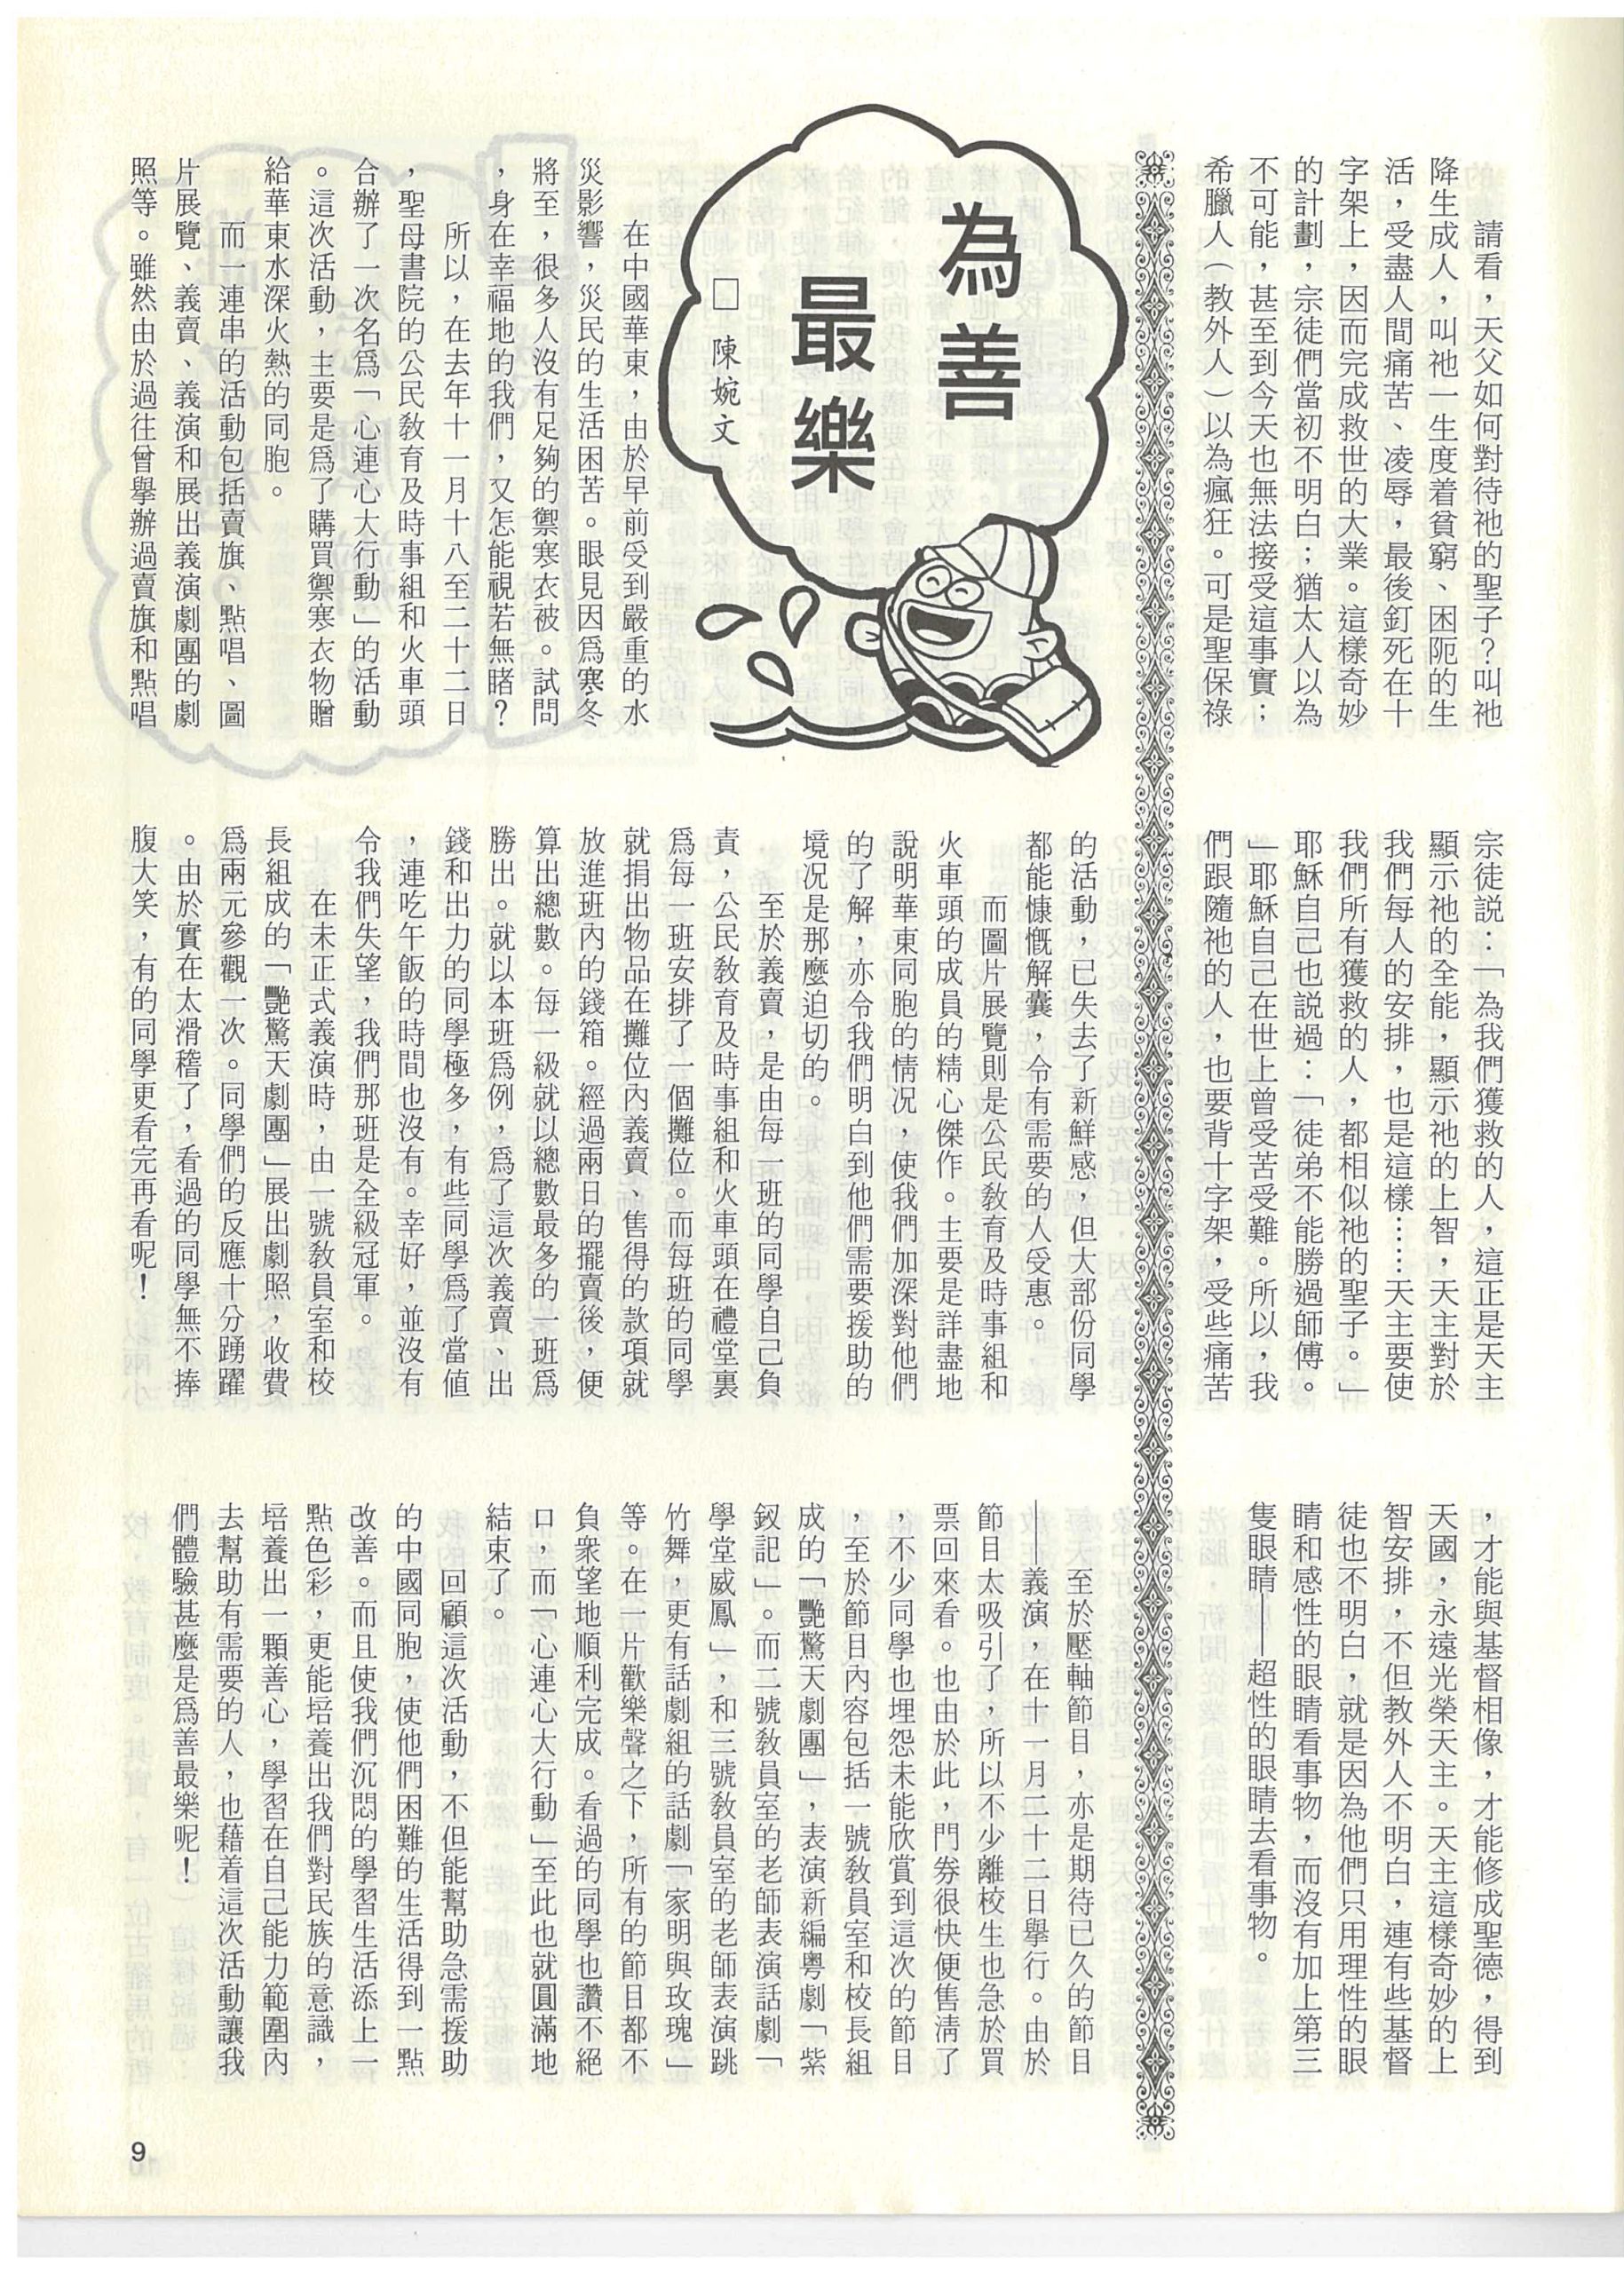 請看，天父如何對待祂的聖子？叫祂
降生成人，叫祂一生度着貧窮、困阨的生
活，受盡人間痛苦、凌辱，最後釘死在十
字架上，因而完成救世的大業。這樣奇妙
的計劃，宗徒們當初不明白；猶太人以為
不可能，甚至到今天也無法接受這事實；
希臘人（教外人）以為瘋狂。可是聖保祿
宗徒説：「為我們獲救的人，這正是天主
顯示祂的全能，顯示祂的上智，天主對於
我們每人的安排，也是這樣……天主要使
我們所有獲救的人，都相似祂的聖子。」
耶穌自己也説過：「徒弟不能勝過師傅。
」耶穌自己在世上曾受苦受難。所以，我
們跟隨祂的人，也要背十字架，受些痛苦
，才能與基督相像，才能修成聖德，得到
天國，永遠光榮天主。天主這樣奇妙的上
智安排，不但教外人不明白，連有些基督
徒也不明白，就是因為他們只用理性的眼
睛和感性的眼睛看事物，而沒有加上第三
隻眼睛——超性的眼睛去看事物。
為善
最樂
□ 陳婉文
在中國華東，由於早前受到嚴重的水
災影響，災民的生活困苦。眼見因爲寒冬
將至，很多人沒有足夠的禦寒衣被。試問
，身在幸福地的我們，又怎能視若無睹？
所以，在去年十一月十八至二十二日
，聖母書院的公民教育及時事組和火車頭
合辦了一次名爲「心連心大行動」的活動
。這次活動，主要是爲了購買禦寒衣物贈
給華東水深火熱的同胞。
而一連串的活動包括賣旗、點唱、圖
片展覽、義賣、義演和展出義演劇團的劇
照等。雖然由於過往曾學辦過賣旗和點唱
的活動，已失去了新鮮感，但大部份同學
都能慷慨解囊，令有需要的人受惠。
而圖片展覽則是公民教育及時事組和
火車頭的成員的精心傑作。主要是詳盡地
說明華東同胞的情况，使我們加深對他們
的了解，亦令我們明白到他們需要援助的
境况是那麼迫切的。
至於義賣，是由每一班的同學自己負
責，公民教育及時事組和火車頭在禮堂裏
爲每一班安排了一個攤位。而每班的同學
就捐出物品在攤位內義賣、售得的款項就
放進班內的錢箱。經過兩日的擺賣後，便
算出總數。每一級就以總數最多的一班爲
勝出。就以本班爲例，爲了這次義賣、出
錢和出力的同學極多，有些同學爲了當値
，連吃午飯的時間也沒有。幸好，並沒有
令我們失望，我們那班是全級冠軍。
在未正式義演時，由一號教員室和校
長組成的「艷驚天劇團」展出劇照，收費
爲兩元參觀一次。同學們的反應十分踴躍
。由於實在太滑稽了，看過的同學無不捧
腹大笑，有的同學更看完再看呢！
至於壓軸節目，亦是期待已久的節目
——義演，在十一月二十二日舉行。由於
節目太吸引了，所以不少離校生也急於買
票回來看。也由於此，門券很快便售淸了
，不少同學也埋怨未能欣賞到這次的節目
，至於節目內容包括一號教員室和校長組
成的「艷驚天劇團」，表演新編粤劇「紫
釵記」。而二號教員室的老師表演話劇「
學堂威鳳」，和三號教員室的老師表演跳
竹舞，更有話劇組的話劇「家明與玫瑰」
等。在一片歡樂聲之下，所有的節目都不
負衆望地順利完成。看過的同學也讚不絕
口，而「心連心大行動」至此也就圓滿地
結束了。
回顧這次活動，不但能幫助急需援助
的中國同胞，使他們困難的生活得到一點
改善。而且使我們沉悶的學習生活添上一
點色彩，更能培養出我們對民族的意識，
培養出一顆善心，學習在自己能力範圍內
去幫助有需要的人，也藉着這次活動讓我
們體驗甚麼是爲善最樂呢！
9